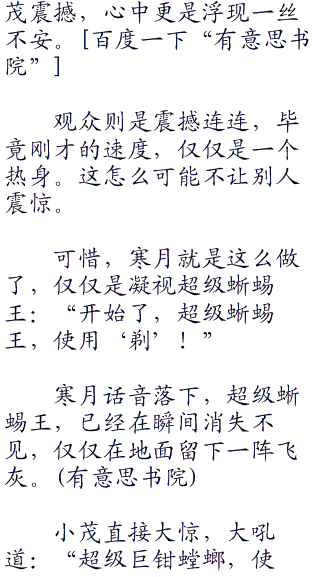 茂震撼，心中更是浮现一丝
不安。[百度一下“有意思书
院”]
观众则是震撼连连，毕
竟刚才的速度，仅仅是一个
热身。这怎么可能不让别人
震惊。
可惜，寒月就是这么做
了，仅仅是凝视超级蜥蜴
王：“开始了，超级蜥蜴
王，使用‘剃’！”
寒月话音落下，超级蜥
蜴王，已经在瞬间消失不
见，仅仅在地面留下一阵飞
灰。(有意思书院)
小茂直接大惊，大吼
道：“超级巨钳螳螂，使